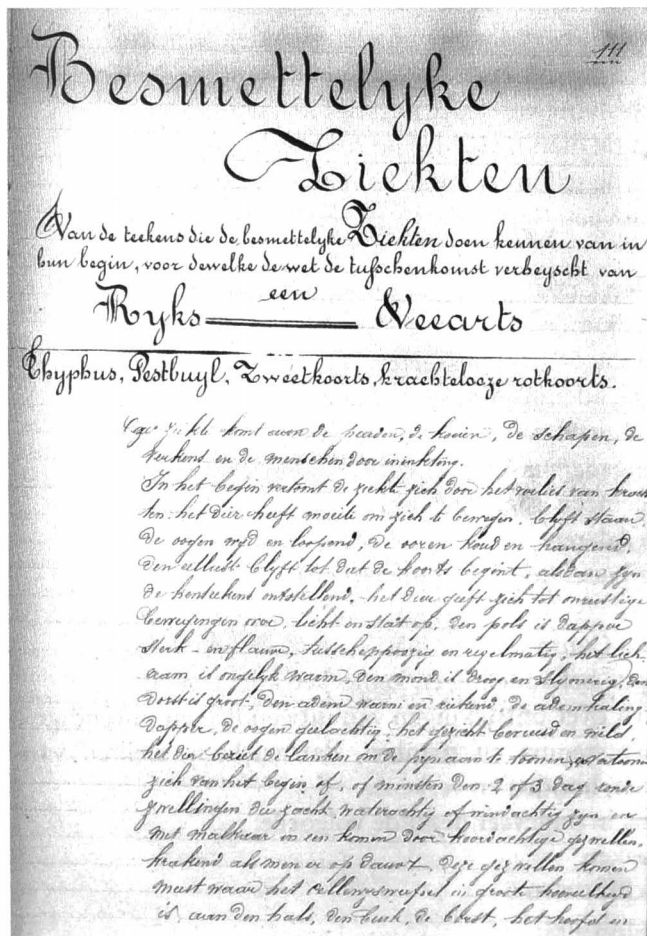 111
Besmettelyke
Ziekten
Van de teekens die de besmettelyke Ziekten doen kennen van in
hun begin, voor dewelke de wet de tusschenkomst verheyscht van
een
Ryks Veearts
Thyphus, Pestbuyl, Zweetkoorts, krachtelooze rotkoorts.
ziekte komt aan de paarden, de koeien, de schapen, de
verkens en de menschen door inenteling.
In het begin vertoont de ziekte zich door het verlies van krach
ten: het dier heeft moeite om zich te bewegen, blyft staan,
de oogen wyd en loopend, de ooren koud en hangend,
den eetlust blyft tot dat de koorts begint, alsdan zyn
de kenteekens ontstellend, het dier geeft zich tot onrustige
bewegingen over, licht en staat op, den pols is dapper
sterk en flauw, tusschenpoozig en regelmatig, het lich-
aam is ongelyk warm, den mond is droog en slymerig, den
dorst is groot, den adem warm en riekend, de ademhaling
dapper, de oogen geelachtig, het gezicht bevreesd en wild,
het dier beziet de lanken om de pyn aan te toonen, vertoonen
zich van het begin of, of minsten den 2 of 3 dag ronde
zwellingen die zacht waterachtig of windachtig zyn en
met malkaar in een komen door koordachtige gezwellen,
krakend als men er op dauwt, deze gezwellen komen
meest waar het cellenweefsel in groote hoeveelheyd
is, aan den hals, den buik, de borst, het hoofd en